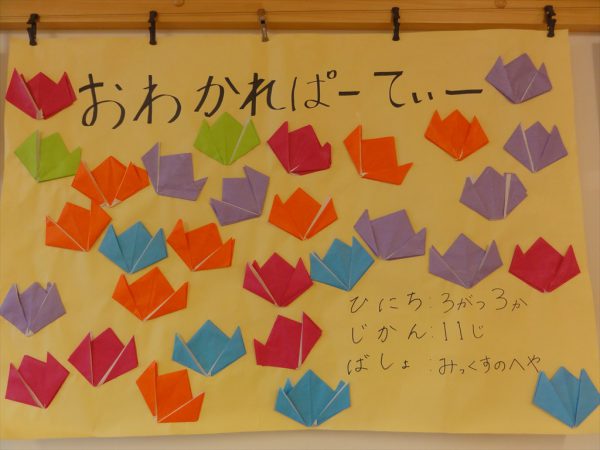 おわかれぱーてぃー
ひにち:3がつ3か
じかん:11じ
ばしょ:みっくすのへや